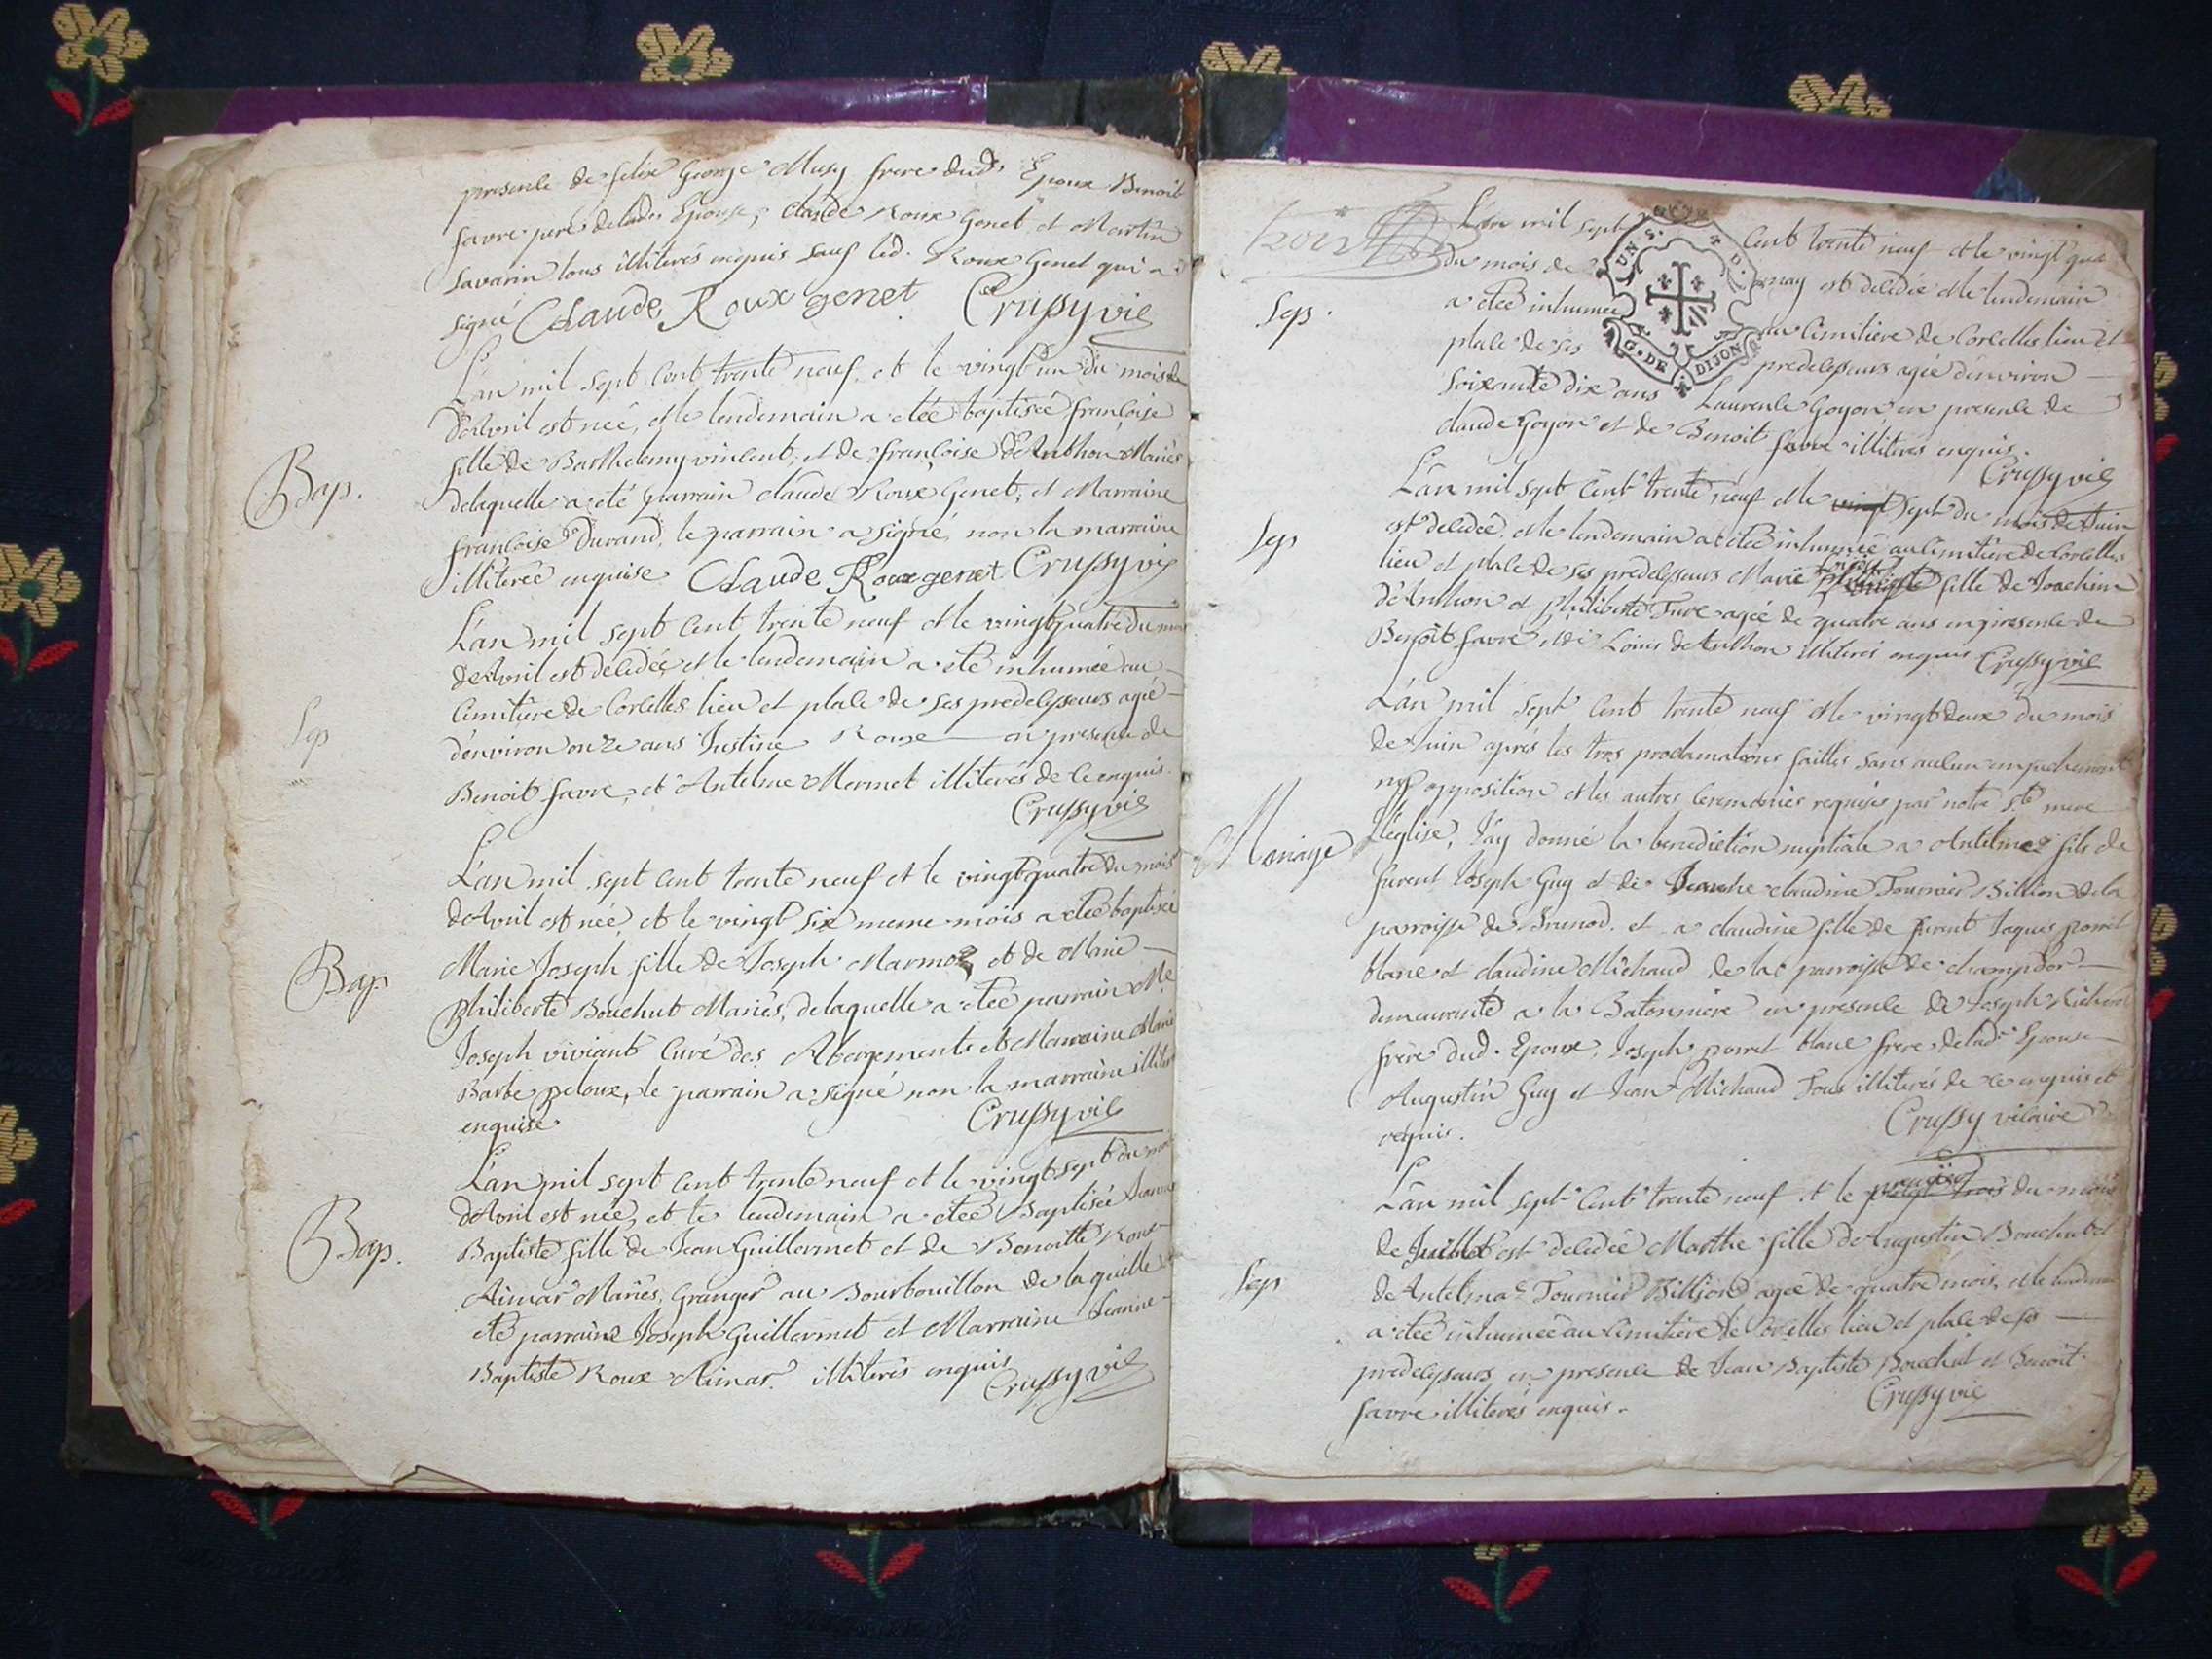 presence de felix George Musy frere dud. Epoux Benoit
favre pere delad. Epouse, Claude Roux Genet et Martin
Savarin tous illiterés enquis sauf led. Roux Genet qui a
signé Claude Roux genet Crussy vic
L'an mil sept cent trente neuf et le vingt un du mois de
d'Avril est née, et le lendemain a etée baptisée françoise
Bap.
fille de Barthelemy vincent, et de françoise D'Anthon Mariés
delaquelle a eté parrain claude Roux Genet, et Marraine
françoise Durand, le parrain a signé, non la marraine
illiterée enquise Claude Roux genet Crussy vic
L'an mil sept cent trente neuf et le vingt quatre du mois
d'Avril est decedée et le lendemain a eté inhumée au
Cimitiere de Corcelles lieu et place de ses predecesseurs agée
Sep
d'environ onze ans Justine Roux en presence de
Benoit favre, et Antelme Mermet illiterés de ce enquis.
Crussy vic
L'an mil sept cent trente neuf et le vingt quatre du mois
d'Avril est née, et le vingt six meme mois a etée baptisée
Bap
Marie Joseph fille de Joseph Marmoz et de Marie
Philiberte Bouchut Mariés, delaquelle a eté parrain Mre
Joseph viviant Curé des Abergements et Marraine Marie
Barbe peloux, le parrain a signé non la marraine illiterée
enquise Crussy vic
L'an mil sept cent trente neuf et le vingt sept du mois
d'Avril est née, et le lendemain a etée Baptisée Jeanne
Bap.
Baptiste fille de Jean Guillermet et de Benoitte Roux
Aimar Mariés, Granger au Bourbouillon de laquelle a
eté parrain Joseph Guillermet et Marraine Jeanne
Baptiste Roux Aimar. illiterés enquis Crussy vic
L'an mil sept cent trente neuf et le vingt qua
du mois de may est decedée et le lendemain
Sep.
a etée inhumée au Cimitiere de Corcelles lieu et
place de ses predecesseurs agée d'environ
soixante dix ans Laurence Goyon en presence de
claude Goyon et de Benoit favre illiterés enquis.
Crussy vic
UN S. D.
G. DE DIJON
L'an mil sept cent trente neuf et le vingt sept du mois de Juin
Sep
est decedée, et le lendemain a etée inhumée au Cimitiere de Corcelles
lieu et place de ses predecesseurs Marie fille de Joachim
d'Anthon et philiberte Ture agée de quatre ans en presence de
Benoit favre et de Louis d'Anthon illiterés enquis Crussy vic
L'an mil sept cent trente neuf et le vingt deux du mois
de Juin aprés les trois proclamations faittes sans aucun empechement
ny opposition et les autres Ceremonies requises par notre Ste mere
Mariage
l'église, J'ay donné la benediction nuptiale a Antelme fils de
furent Joseph Guy et de claudine Tournier Billion de la
parroisse de Brenod. et a claudine fille de furent Jaques poncet
blanc et claudine Michaud de la parroisse de champdor
demeurante a la Batonniere en presence de Joseph Richerot
frere dud. Epoux, Joseph poncet blanc frere delad. Epouse
Augustin Guy et Jean Michaud tous illiterés de ce enquis et
requis. Crussy vicaire
L'an mil sept cent trente neuf et le premier vingt trois du mois
de Juillet est decedée Marthe fille d'Augustin Bouchut et
Sep
de Antelma Tournier Billiond agée de quatre mois, et le lendemain
a etée inhumée au Cimitiere de Corcelles lieu et place de ses
predecesseurs en presence de Jean Baptiste Bouchut et Benoit
favre illiterés enquis. Crussy vic